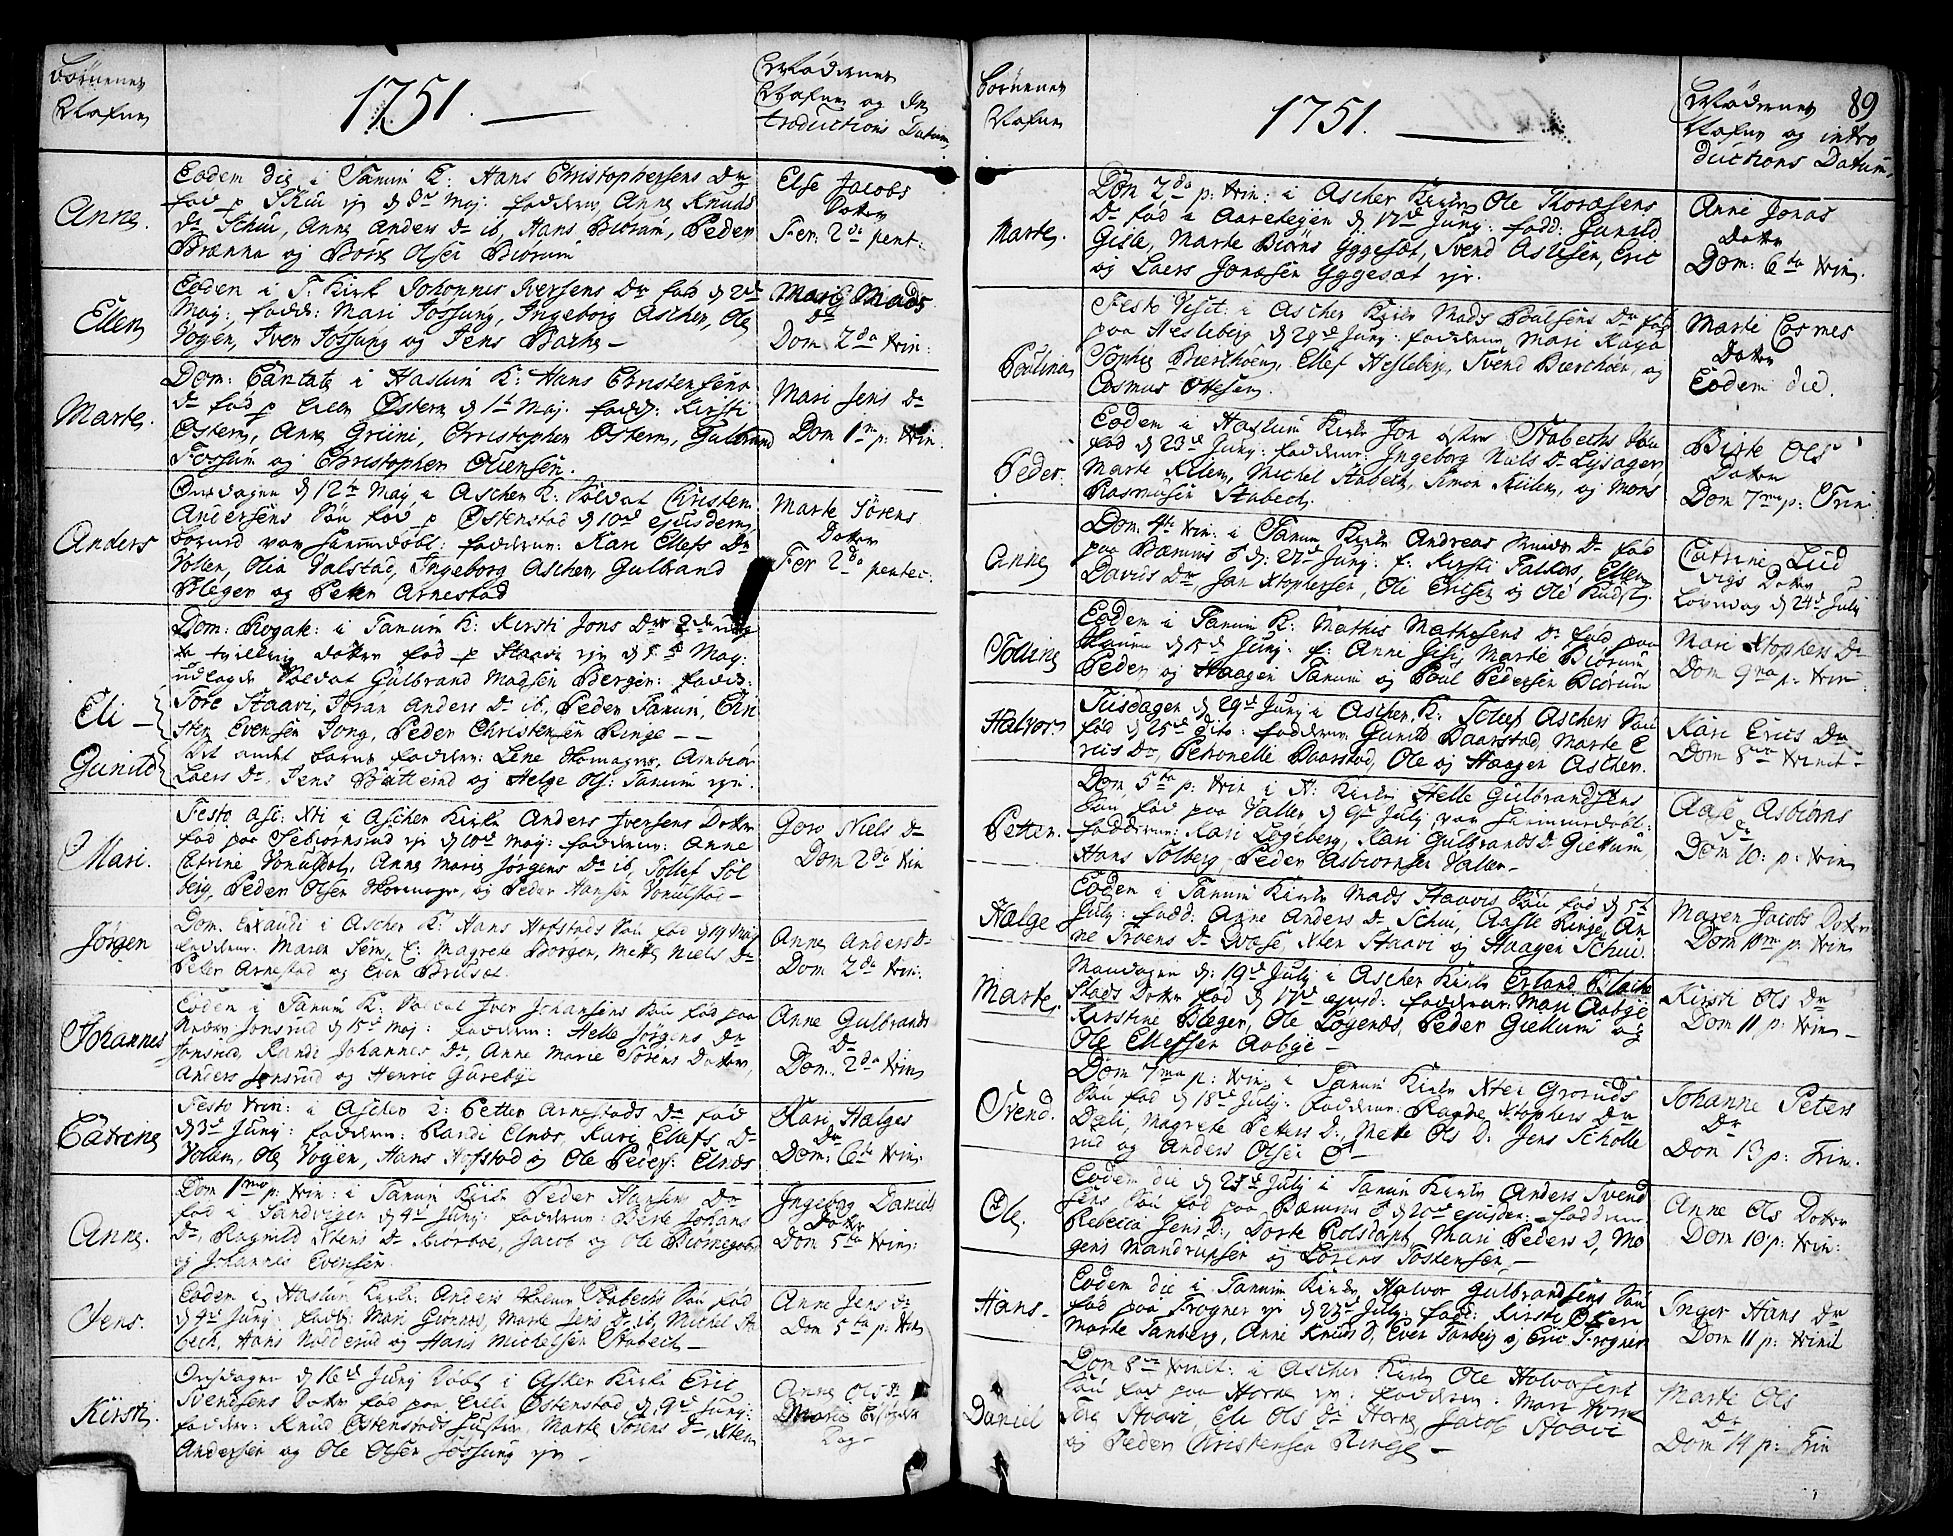 Børnenes
Nafne
1751.
Mødrenes
Nafne og In
troductions Datum
Anne.
Eodem die i Tanum K: Hans Christophersens Dr
fød p Skui og d 8de Maj: fadderne, Anne Knuds
Dr Schui, Anne Anders Dr ib, Hans Biørum, Peder
Brænne og Børe Olsen Biørum
Else Jacobs
Dotter
Fer: 2da pent:
Ellen
Eodem i T. Kirke Johannes Iversens Dr fød d 2de
Maj: fadd: Mari Jossung, Ingeborg Ascher, Ole
Vøgen, Iver Jossung og Jens Bache
Marig Mads
Dr
Dom 2da trin:
Marte.
Dom: Cantate i Haslum K: Hans Christensens
Dr fød p Lille Østern d 1st Maj. fadd: Kirsti
Østern, Anne Griini, Christopher Østern, Gulbrand
Fossum og Christopher Olsensen.
Mari Jens Dr
Dom 1ma p: trin:
Anders
Onsdagen d 12te Maj i Ascher K: Soldat Christen
Andersens Søn fød p Østenstad d 10de ejusdem
barnet var hjemmedøbt: fadderne: Kari Ellefs Dr
Vollen, Olia Valstad, Ingeborg Ascher, Gulbrand
Bleger og Peter Arnestad
Marte Sørens
Dotter
Fer 2da pentec:
Eli
Gunild
Dom: Rogate: i Tanum K: Kirsti Jons Drs 2de uægte
tvilling døttre fød p Staavi d 5te Maj:
udlagde Soldat Gulbrand Madsen Bergen: fadd:
Tore Staavi, Jøran Anders Dr ib, Peder Tanum, Chri
sten Evensen Jong, Peder Christensen Ringe
Det andet barns fadderne: Lene Skomager, Asbiør
Laers Dr, Jens Butteend og Helge Ols: Tanum
Mari.
Festo asc: Xti i Ascher Kirke Anders Iversens Dotter
fød paa Sebiørnsrud d 10de Maj: fadderne: Anne
Catrine Vøndstad, Anne Marie Jørgens Dr ib, Tollef Sol
berg, Peder Olsen Skomager, og Peder Hansen
Goro Niels Dr
Dom 2da trin
Jørgen
Dom. Exaudi i Ascher K: Hans Hofstads Søn fød d 19 Maj
fadderne: Maren Sem, E: Magrete Borgen, Mette Niels Dr
Peter Arnestad og Erik Brusæt.
Anne Anders Dr
Dom 2da trin:
Johannes
Eodem i Tanum K: Soldat Iver Johansens Søn fød paa
Nedre Jonsrud d 15de Maj: fadderne: Helle Jørgens Dr
Jonsrud, Randi Johannes Dr, Anne Marie Sørens Dotter,
Anders Jonsrud og Henric Gurebye
Anne Gulbrands
Dr
Dom: 2da trin
Catrine
Festo trin: i Ascher K: Petter Arnestads Dr fød
d 3de Junj: fadderne: Randi Elnes, Kari Ellefs Dr
Volen, Ole Vøgen, Hans Hofstad og Ole Peders: Elnes
Kari Halges
Dr
Dom: 6ta trin:
Anne.
Dom 1ma p: trin: i Tanum Kirke Peder Hansens Dr
fød i Sandvigen d 4de Junj: fadderne: Berte Johans
Dr, Ragnild Xtens Dr Kiørboe, Jacob og Ole Biørnegaard
og Johannes Evensen.
Ingeborg Daniels
Dotter
Dom 5ta trin:
Jens.
Eodem i Haslum Kirke: Anders Stabechs Søn fød
d 9de Junj: fadd: Mari Giønnes, Marte Jens Dr ib, Michel Sta
bech, Hans Nadderud og Hans Michelsen Stabech
Anne Jens Dr
Dom 5ta p: trin
Kirsti.
Onsdagen d 16de Junj døbt i Asker Kirke Eric
Svendsens Dotter fød paa Lille Østenstad d 9de Junj:
fadder: Knud Østenstads Hustru, Marte Sørens Dr, Xten
Andersen og Ole Olsen Jossung
Anne Ols Dr
Mariæ
Dag
Børnenes
Nafne
1751.
Mødrenes
Nafne og intro
ductions Datum
89
Marte.
Dom 2da p: trin: i Ascher Kirke Ole Thoresens
Dr fød i Aarestegen d 17de Junj: fadd: Gunild
Gisle, Marte Biørns Yggeset, Svend Aslesen, Eric
og Laers Jonæsen Yggesæt
Anne Jonas
Dotter
Dom: 6ta trin.
Poulina
Festo Visit: i Ascher Kirke Mads Poulsens Dr fød
paa Nesleberg d 29de Junj: fadderne Mari
Sophie Bærthoen, Ellef Nesleberg, Svend Bærchoen, og
Cosmus Ottesen.
Marte Cosmes
Dotter
Eodem die.
Peder.
Eodem i Haslum Kirke Jon Stabechs Søn
fød d 23de Junj: fadderne: Ingeborg Niels Dr Lysager
Marte Kilen, Michel Stabech, Simon Kiilen, og Mons
Rasmusen Stabech.
Birte Ols
Dotter
Dom 7ma p: Trini:
Anne
Dom: 4te trin: i Tanum Kirke Andreas Knuds Dr fød
paa Bærums d: 27de Junj: f: Kirsti Tallers, Ellen
Davids Dr, Jan Xtophersen, Ole Ericsen og Ole
Catrine Lud
vigs Dotter
Løverdag d 24de Julj
Tolline
Eodem i Tanum K: Mathis Mathesens Dr fød paa
d 5de Junj: f: Anne Gisi, Marte Biørum
Peder og Haagen Tanum og Poul Pedersen Biørum
Mari Xtophers Dr
Dom 9na p: trin:
Halvor
Tiisdagen d 29de Junj i Ascher K: Tollef Aschers Søn
fød d 25de dito: fadderne: Gunild Baarstad, Marte E
rics Dr, Petronelle Baarstad, Ole og Haagen Ascher.
Kari Erics Dr
Dom 8va trinit
Petter.
Dom 5ta p: trin i H: Kirke, Helle Gulbrandsens
Søn fød paa Valler d 9de Julj var hjemmedøbt:
fadderne: Kari Løgeberg, Kari Gulbrands Dr Giettum,
Hans Solberg, Peder Asbiørnsen Valler
Aase Asbiørns
Dr
Dom 10: p: trin
Hælge
Eodem i Tanum Kirke Mads Staavis Søn fød d 5te
Julj: fadd: Anne Anders Dr Schui, Aasle Ringe, An
ne Troens Dr Qvase, Xten Staavi og Haagen Schui.
Maren Jacobs Dotter
Dom 10ma p: trin
Marte.
Mandagen d: 19de Julj i Ascher Kirke Erland Bilache
stads Dotter fød d 17de ejusd: fadderne Mari Aabye
Kirstine Bleger, Ole Løgenæs, Peder Giellum og
Ole Ellefsen Aabye
Kirsti Ols Dr
Dom 11 p: trin
Svend.
Dom 7ma p: trin i Tanum Kirke Xten Groruds
Søn fød d 18de Julj: fadderne: Xtophers Dr
Dæli, Magrete Peters Dr, Mette Ols D: Jens Scholle
rud og Anders Olsen
Johanne Peters
Dr
Dom 13 p: Trin.
Ole
Eodem die d 25de Julj i Tanum Kirke Anders Svend
sens Søn fød paa Bærums d 20de ejusdem: fadderne
Rebecca Jens D:, Dorte Rolstaph, Mari Peders D, Mo
gens Mandrupsen og Lorens Tostensen,
Anne Ols Dotter
Dom 10 p: trin:
Hans
Eodem die i Tanum Kirke, Halvor Gulbrandsens Søn
fød paa Frogner d 23de Julj: fadd: Kirsti Økeri
Marte Tanberg, Anne Knuds D, Even Tanberg og Eric Frogner
Inger Hans Dr
Dom 11 p: trinit
Daniel
Dom 8va trinit: i Ascher Kirke Ole Halvorsens
Søn fød paa Horne: fadderne: Mari Horne
Tore Staavi, Eli Ols Dr Horne, Jacob Staavi
og Peder Christensen Ringe
Marte Ols
Dr
Dom 14 p: Trin